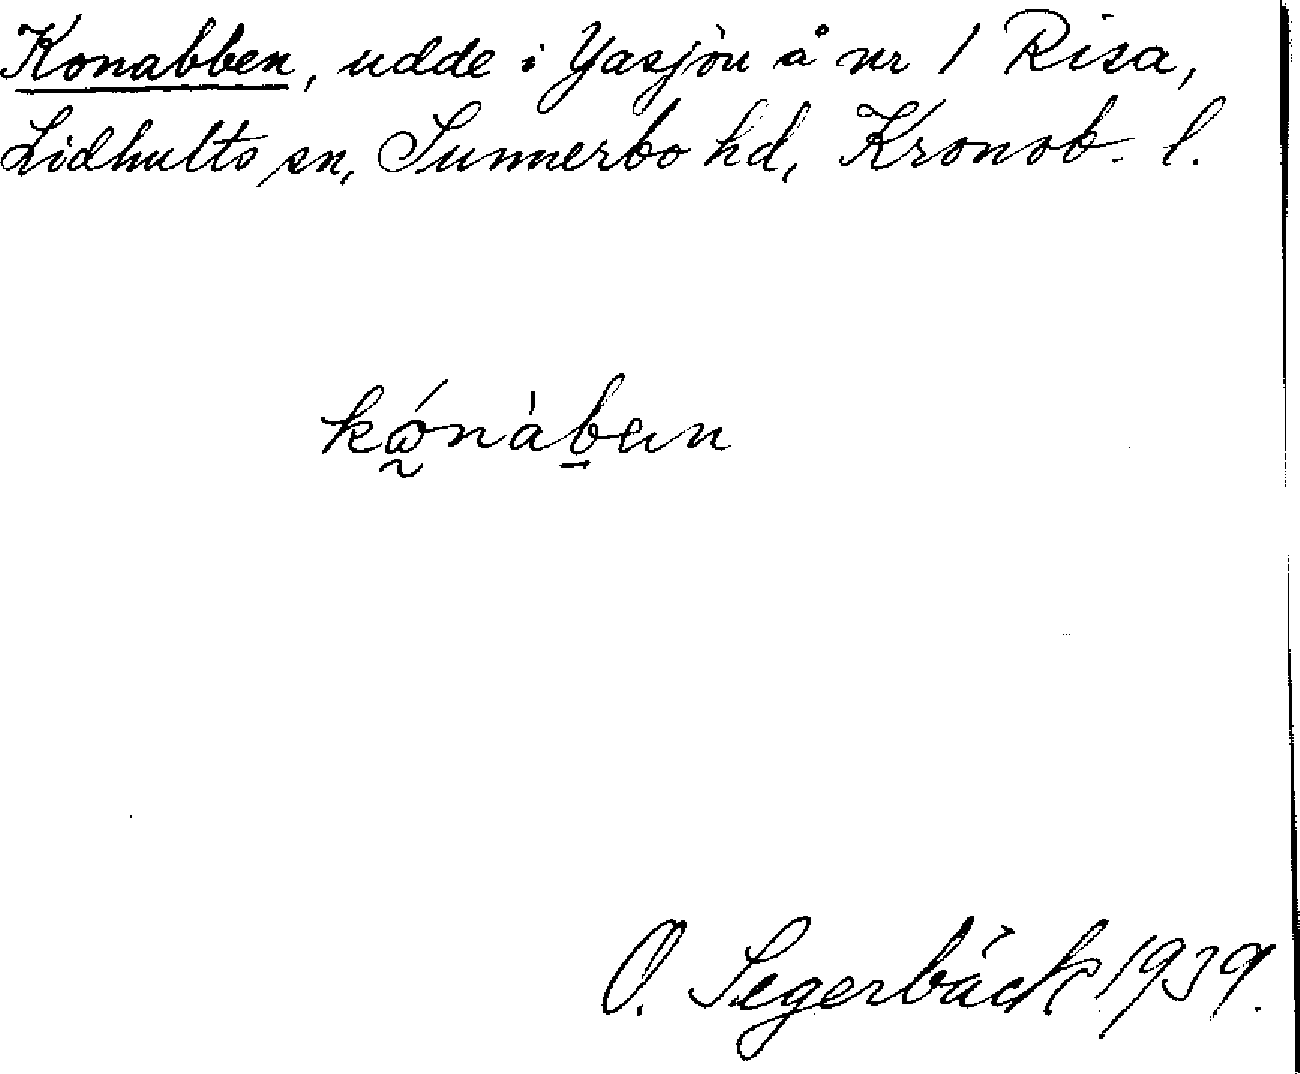 Konabben, udde i Yasjön å nr 1 Risa,
Lidhults sn, Sunnerbo hd, Kronob. l.
O. Segerbäck 1939.